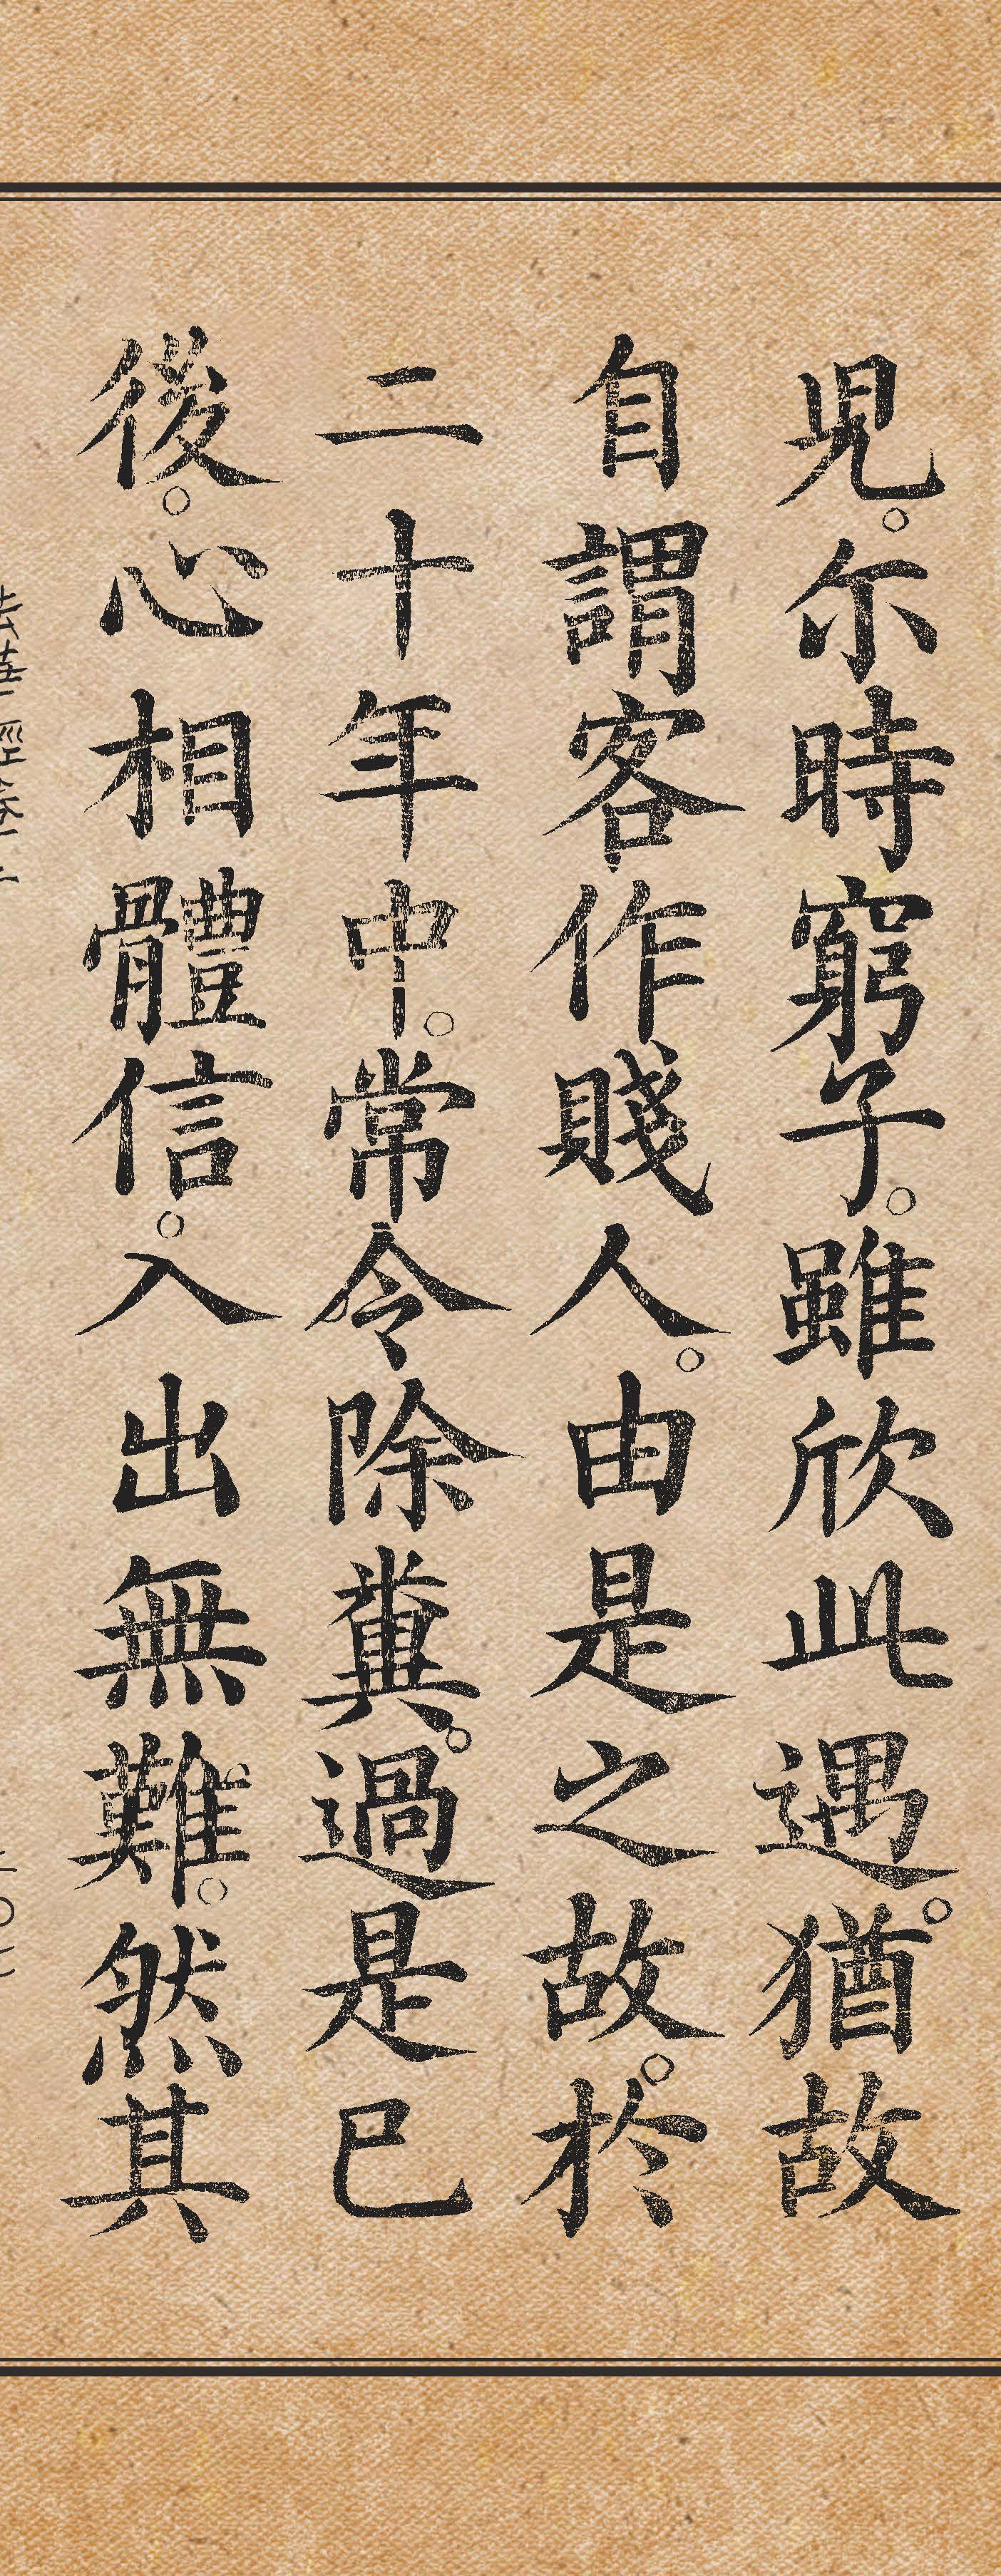 児。尓時窮子。雖欣此遇。猶故
自謂客作賤人。由是之故。於
二十年中。常令除糞。過是已
後。心相體信。入出無難。然其